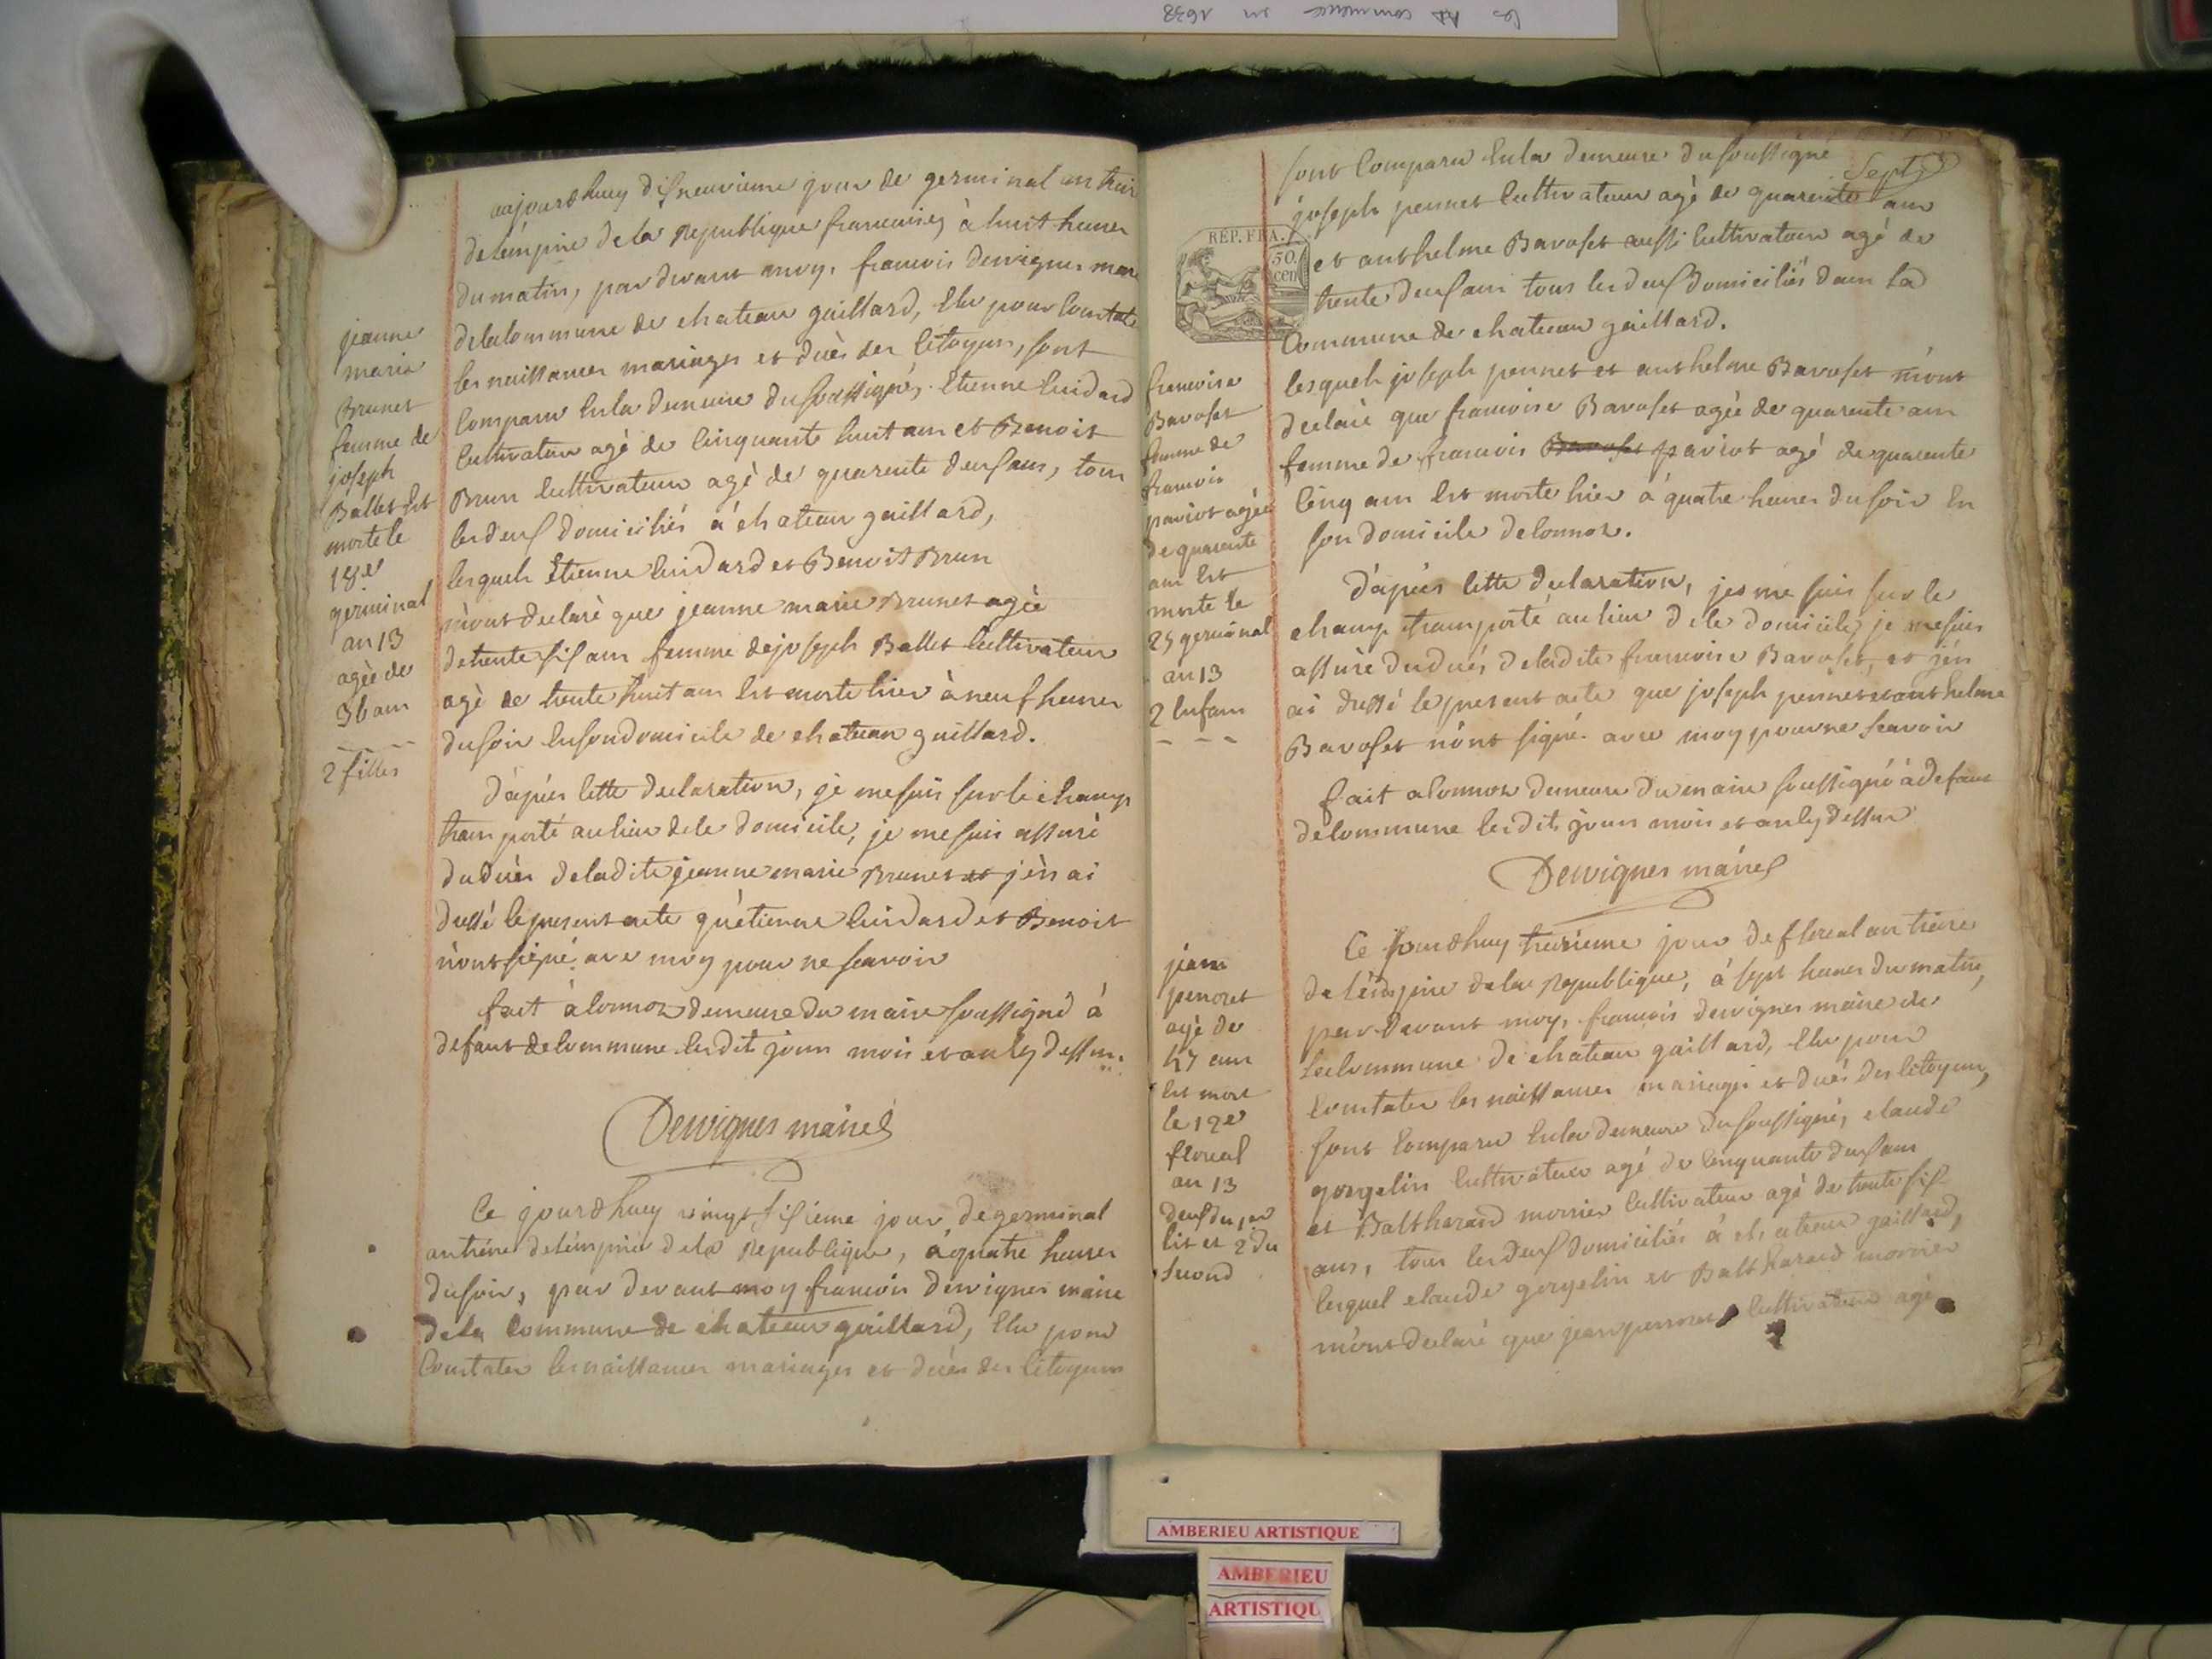 aujourdhuy disneuvieme jour de germinal an treis
de lémpire de la Republique francaise, à huit heures
du matin, par devant moy, francois dervigner maire
de la Commune de chateau gaillard, Elu pour Constater
les naissances mariages et dués des Citoyens, sont
Comparu En la demeure du soussigné, Etienne Cuidard
Cultivateur agé de Cinquante huit ans et Benoit
Brun Cultivateur agé de quarente deux ans, tous
les deux domiciliés á chateau gaillard,
lesquels Etienne Cuidard et Benoit Brun
m'ont declaré que jeanne marie Brunet agée
de trente six ans femme de joseph Ballet Cultivateur
agé de trente huit ans Est morte hier à neuf heures
du soir En son domicile de chateau gaillard.
d'apres Cette declaration, je me suis sur le champ
transporté au lieu de Ce domicile, je me suis assuré
du dués de ladite jeanne marie Brunet et j'en ai
dressé le present acte qu'etienne Cuidard et Benoit
n'ont signé avec moy pour ne scavoir
fait à Connoz demeure du maire soussigné à
defaut de Commune les dit jours mois et an Cy dessus.
Dervignes maire
jeanne
marie
Brunet
femme de
joseph
Ballet Est
morte le
18e
germinal
an 13
agée de
36 ans
2 filles
Ce jourdhuy vingt sisieme jour de germinal
an treise de lémpire de la Republique, á quatre heures
du soir, par devant moy francois dervignes maire
de la Commune de chateau gaillard, Elu pour
Constater les naissances mariages et dués des Citoyens
Sept
sont Comparu En la demeure du soussigné
joseph pennet Cultivateur agé de quarente ans
et anthelme Barofet aussi Cultivateur agé de
trente deux ans tous les deux Domiciliés dans la
Commune de chateau gaillard.
RÉP. FRA.
50
cen
lesquels joseph pennet et anthelme Barofet m'ont
declaré que francoise Barofet agée de quarente ans
femme de francois Barofet pariot agé de quarente
Cinq ans Est morte hier á quatre heures du soir En
son domicile de Connoz.
d'apres Cette declaration, je me suis sur le
champ transporté au lieu de Ce domicile je me suis
assuré du dués de ladite francoise Barofet, et j'en
ai dressé le present acte que joseph pennet et anthelme
Barofet n'ont signé avec moy pour ne scavoir
fait a Connoz demeure du maire soussigné à defaut
de Commune les dit jours mois et an Cy dessus
Dervignes maire
francoise
Barofet
femme de
francois
pariot agée
de quarente
ans Est
morte le
25 germinal
an 13
2 Enfans
Ce jourdhuy treisieme jour de floreal an treise
de lémpire de la Republique, á sept heures du matin,
par devant moy, francois dervignes maire de
la Commune de chateau gaillard, Elu pour
Constater les naissances mariages et dués des Citoyens,
sont Comparu En la demeure du soussigné, claude
gorgelin Cultivateur agé de Cinquante deux ans
et Balthazard morrier Cultivateur agé de trente six
ans, tous les deux domiciliés á chateau gaillard,
lesquel claude gorgelin et Balthazard morrier
m'ont declaré que jean penoret Cultivateur agé
jean
penoret
agé de
47 ans
Est mort
le 12e
floreal
an 13
deux du 1er
lit et 2 du
second
AMBERIEU ARTISTIQUE
AMBERIEU
ARTISTIQU